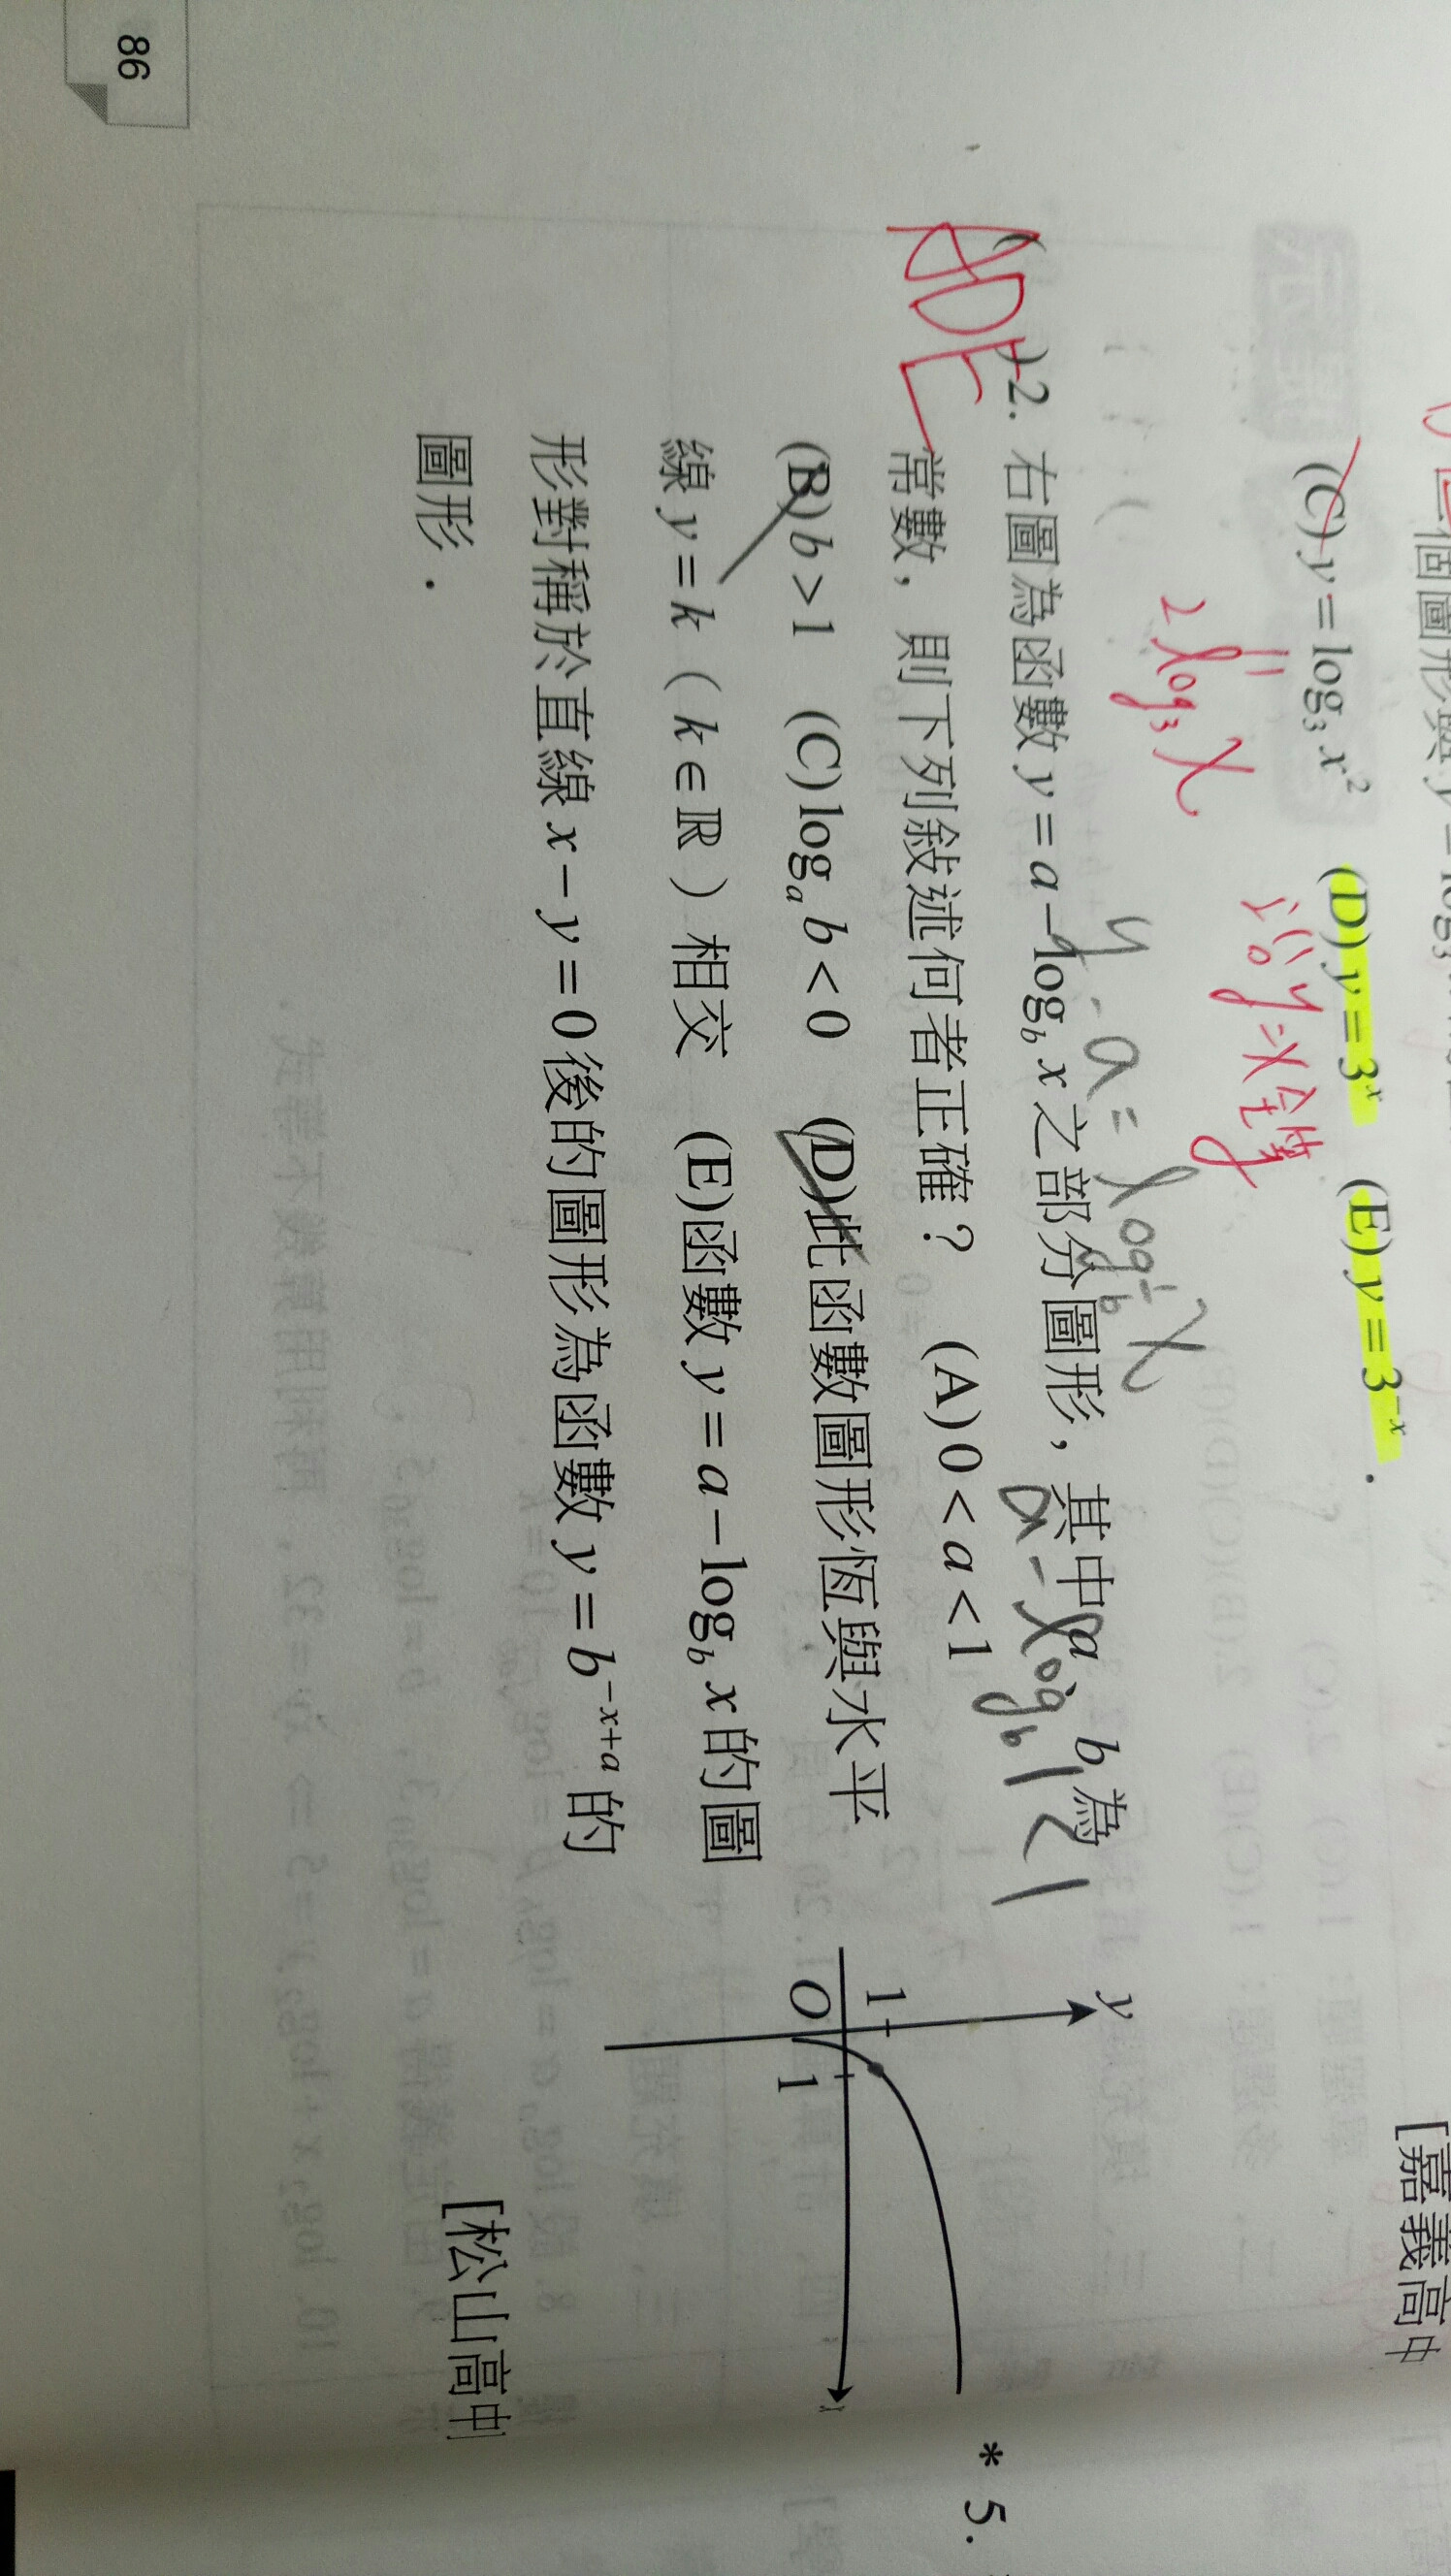 (C) y = log₃ x² (D) y = 3ˣ (E) y = 3⁻ˣ .
[嘉義高中
2 log₃ X
y - a = log X
ADE
( ) 2. 右圖為函數 y = a − log_b x 之部分圖形，其中 a, b 為
a - log_b 1 < 1
常數，則下列敘述何者正確？ (A) 0 < a < 1
(B) b > 1 (C) logₐ b < 0 (D) 此函數圖形恆與水平
線 y = k（k ∈ ℝ）相交 (E) 函數 y = a − log_b x 的圖
形對稱於直線 x − y = 0 後的圖形為函數 y = b^(−x+a) 的
圖形．
y
1
O
1
x
[松山高中
* 5.
86